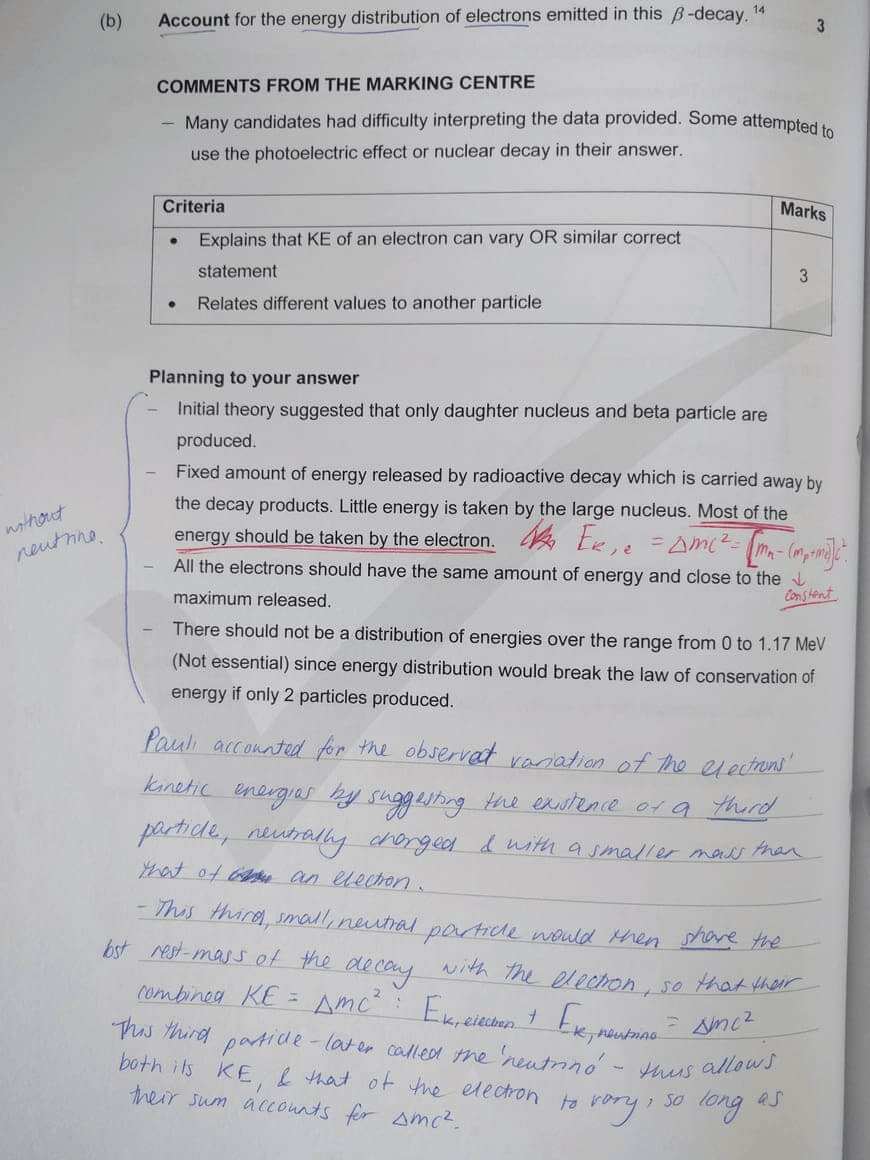 (b) Account for the energy distribution of electrons emitted in this β-decay. 14
3
COMMENTS FROM THE MARKING CENTRE
– Many candidates had difficulty interpreting the data provided. Some attempted to
use the photoelectric effect or nuclear decay in their answer.
Criteria Marks
• Explains that KE of an electron can vary OR similar correct
statement
3
• Relates different values to another particle
Planning to your answer
– Initial theory suggested that only daughter nucleus and beta particle are
produced.
– Fixed amount of energy released by radioactive decay which is carried away by
the decay products. Little energy is taken by the large nucleus. Most of the
energy should be taken by the electron. E_K,e = Δmc² = [m_n - (m_p+m_e)]c².
– All the electrons should have the same amount of energy and close to the ↓
maximum released. constant
– There should not be a distribution of energies over the range from 0 to 1.17 MeV
(Not essential) since energy distribution would break the law of conservation of
energy if only 2 particles produced.
without
neutrino.
Pauli accounted for the observed variation of the electrons'
kinetic energies by suggesting the existence of a third
particle, neutrally charged & with a smaller mass than
that of an electron.
- This third, small, neutral particle would then share the
lost rest-mass of the decay with the electron, so that their
combined KE = Δmc² : E_K,electron + E_K,neutrino = Δmc²
This third particle - later called the 'neutrino' - thus allows
both its KE, & that of the electron to vary, so long as
their sum accounts for Δmc².